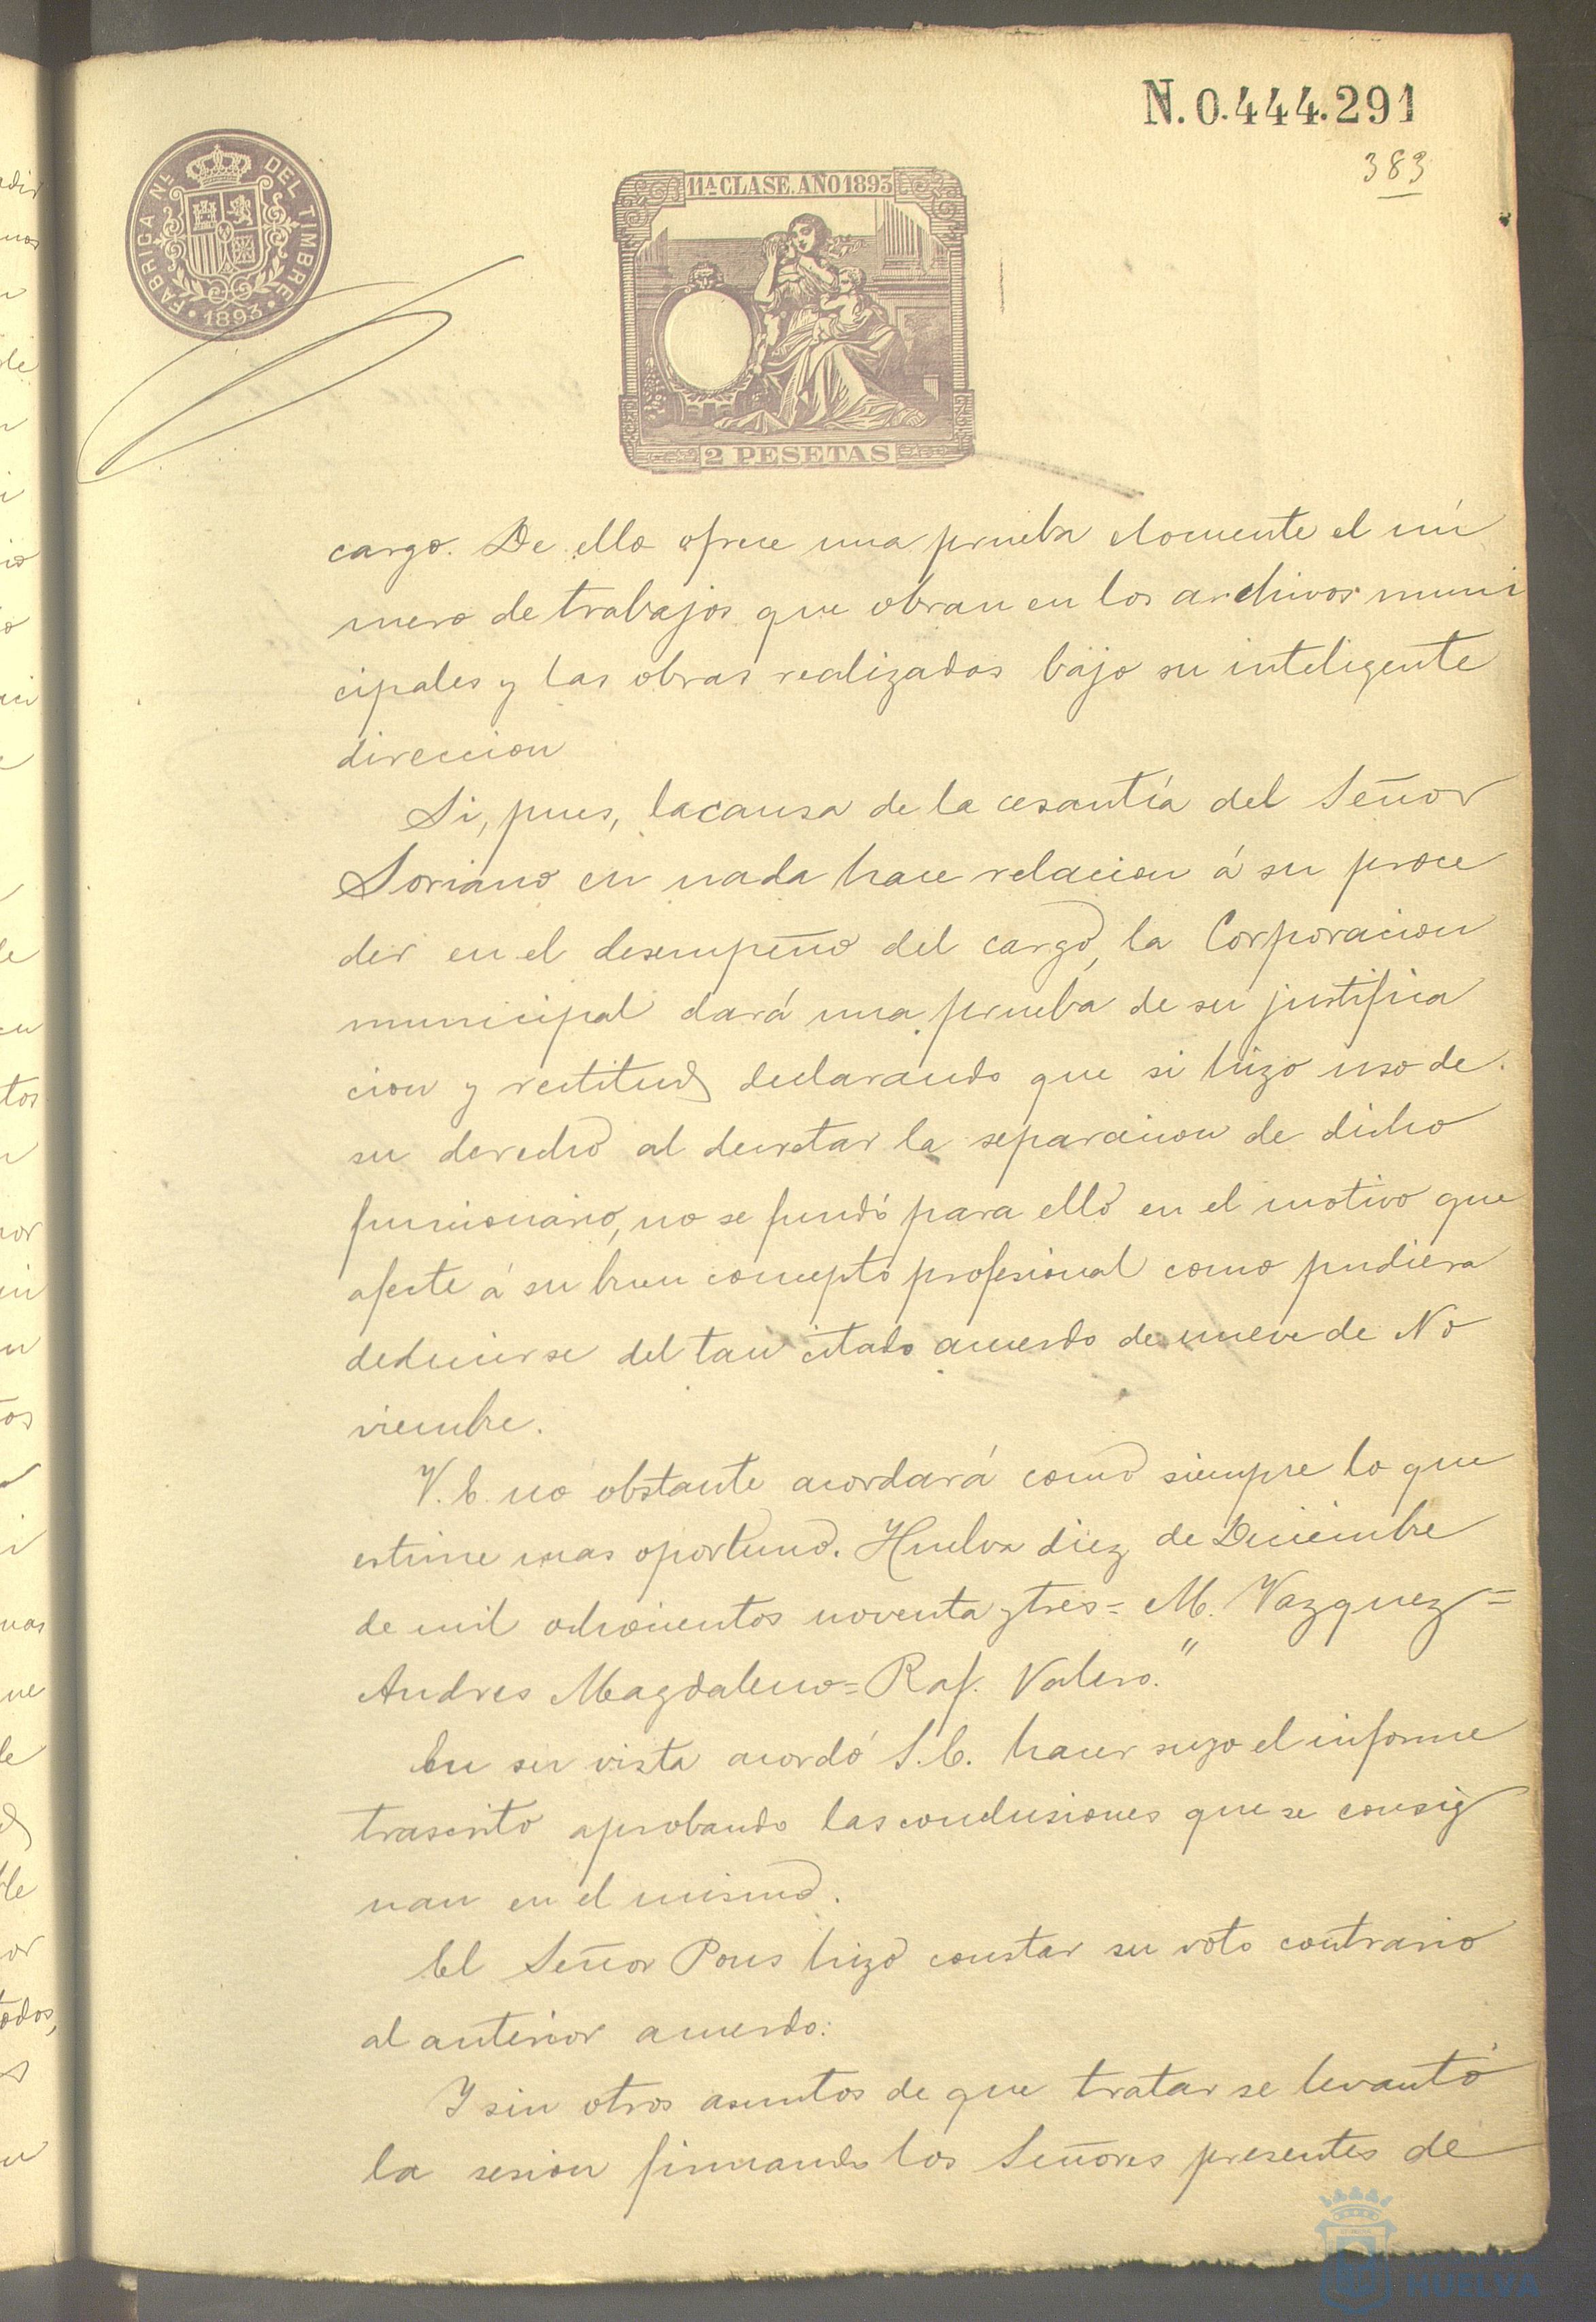 N. 0.444.291
383
FABRICA NL. DEL TIMBRE
1893
11ª CLASE. AÑO 1893
2 PESETAS
cargo. De ello ofrece una prueba elocuente el nú
mero de trabajos que obran en los archivos muni
cipales y las obras realizadas bajo su inteligente
direccion
Si, pues, la causa de la cesantía del Señor
Soriano en nada hace relacion á su proce
der en el desempeño del cargo, la Corporacion
municipal dará una prueba de su justifica
cion y rectitud declarando que si hizo uso de
su derecho al decretar la separacion de dicho
funcionario, no se fundó para ello en el motivo que
afecte á su buen concepto profesional como pudiera
deducirse del tan citado acuerdo de nueve de No
viembre.
V. E. no obstante acordará como siempre lo que
estime mas oportuno. Huelva diez de Diciembre
de mil ochocientos noventa y tres = M. Vazquez =
Andres Magdaleno = Raf. Valero."
En su vista acordó S. E. hacer suyo el informe
trascrito aprobando las conclusiones que se consig
nan en el mismo.
El Señor Pons hizo constar su voto contrario
al anterior acuerdo.
Y sin otros asuntos de que tratar se levantó
la sesion firmando los Señores presentes de
HUELVA